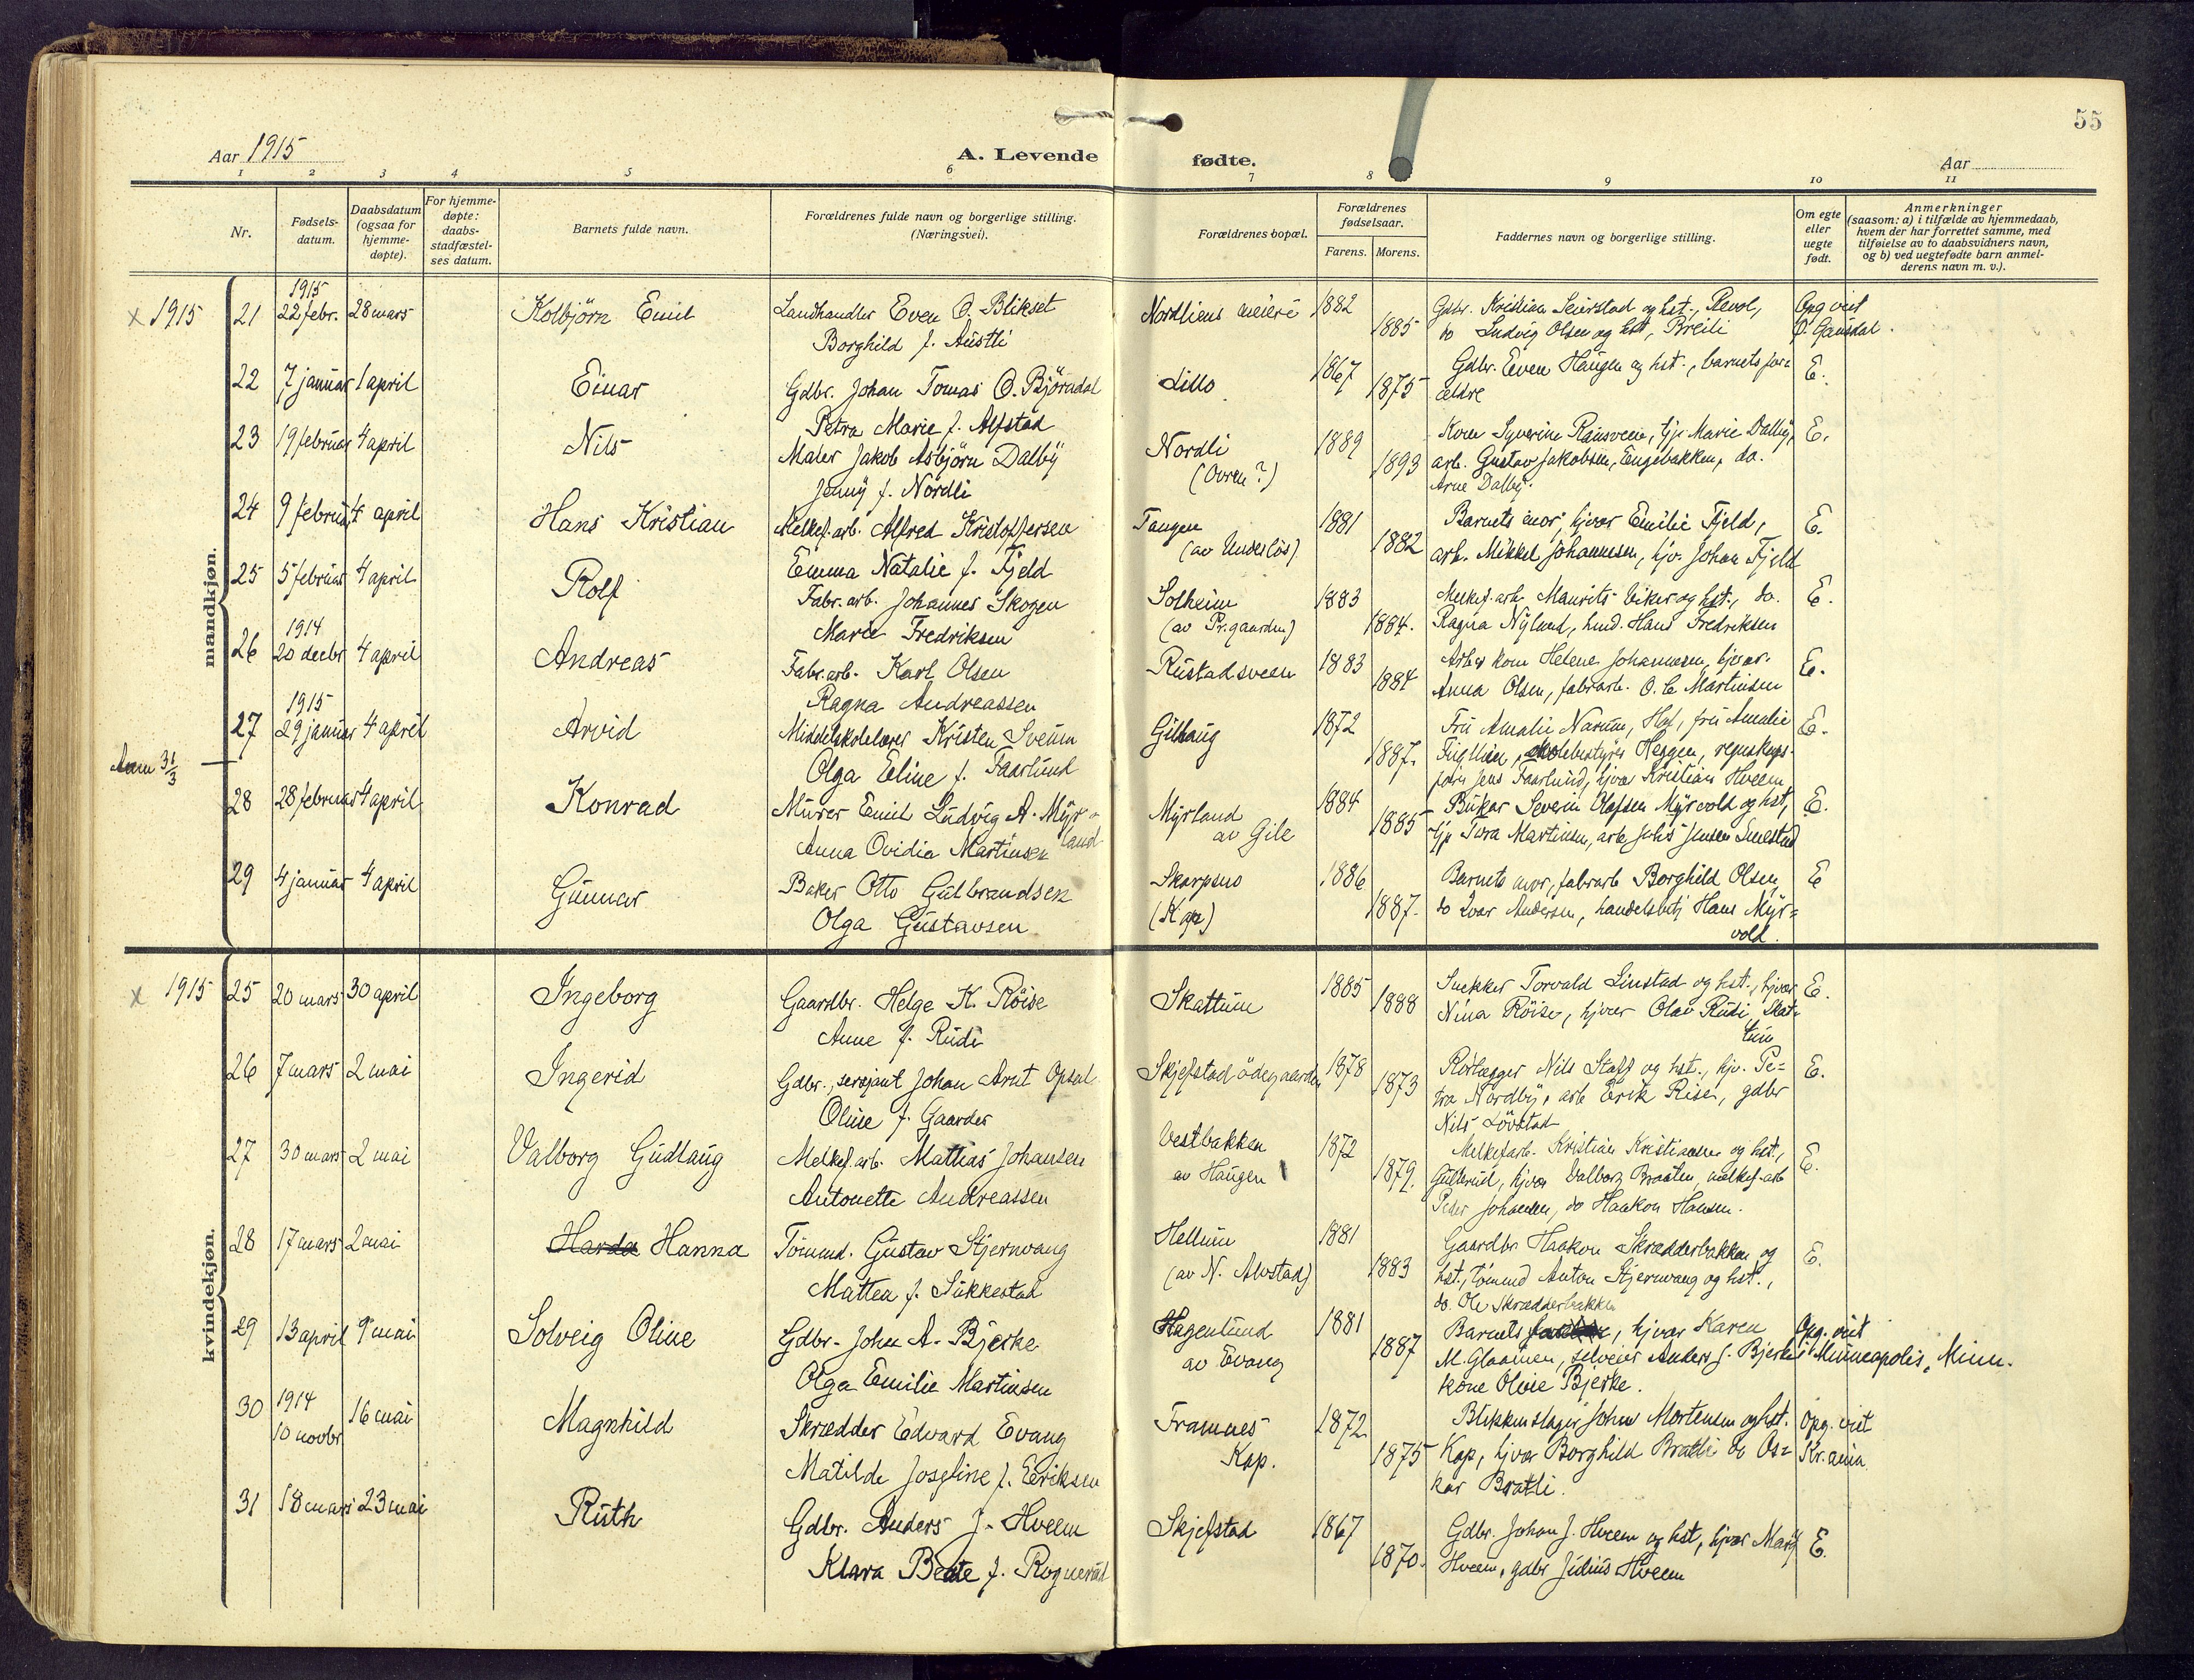 55
Aar 1915
A. Levende
fødte.
Aar
1 2 3 4 5 6 7 8 9 10 11
Nr.
Fødsels-
datum.
Daabsdatum
(ogsaa for
hjemme-
døpte).
For hjemme-
døpte:
daabs-
stadfæstel-
ses datum.
Barnets fulde navn.
Forældrenes fulde navn og borgerlige stilling.
(Næringsvei).
Forældrenes bopæl.
Forældrenes
fødselsaar.
Farens. Morens.
Faddernes navn og borgerlige stilling.
Om egte
eller
uegte
født.
Anmerkninger
(saasom: a) i tilfælde av hjemmedaab,
hvem der har forrettet samme, med
tilføielse av to daabsvidners navn,
og b) ved uegtefødte barn anmel-
derens navn m. v.).
mandkjøn.
x 1915
1915
21 22 febr. 28 mars Kolbjörn Emil Landhandler Even O. Blikset Nordliens meieri 1882 Gdbr. Kristian Seierstad og hst., Revol, Opg. vist
Borghild f. Austli 1885 do Ludvig Olsen og hst, Breili Ö. Gausdal.
22 7 januar 1 april Einar Gdbr. Johan Tomas O. Björndal Lillo 1867 Gdbr. Even Haugen og hst., barnets for= E.
Petra Marie f. Alfstad 1875 ældre
23 19 februar 4 april Nils Maler Jakob Asbjörn Dalby Nordli 1889 Kone Syverine Rausveen, tjp Marie Dalby, E.
Jenny f. Nordli (Ovren?) 1893 arb. Gustav Jakobsen, Engebakken, do.
Arne Dalby.
24 9 februar 4 april Hans Kristian Melkef. arb. Alfred Kristoffersen Tangen 1881 Barnets mor, hjvær Emilie Fjeld, E.
Emma Natalie f. Fjeld (av Underlös) 1882 arb. Mikkel Johannesen, hjv. Johan Fjeld
25 5 februar 4 april Rolf Fabr. arb. Johannes Skogen Solheim 1883 Melkef. arb. Maurits Viker og hst., do. E.
Marie Fredriksen (av Pr.gaarden) 1884. Ragna Nylund, hmd. Hans Fredriksen
1914
26 20 decbr 4 april Andreas Fabr. arb. Karl Olsen Rustadsveen 1883 Arb.s kone Helene Johannesen, hjvær. E.
Ragna Andreassen 1884 Anna Olsen, fabrarb. O. C. Martinsen
1915
27 29 januar 4 april Arvid Middelskolelærer Kristen Sveum Gilhaug 1872 Fru Amalie Narum, Hof, fru Amalie E.
Olga Eline f. Faarlund 1887. skolebestyrer Heggen, regnskaps-
förer Jens Faarlund, hjvær Kristian Hveem
31/3
28 28 februar 4 april Konrad Murer Emil Ludvig A. Myr= Myrland 1884 Bökar Severin Olafsen Myrvold og hst, E.
land
Anna Ovidia Martinsen av Gile 1885 tjp Tora Martinsen, arb. Johs Jensen Smestad
29 4 januar 4 april Gunnar Baker Otto Gulbrandsen Skarpsno 1886 Barnets mor, fabrarb Borghild Olsen, E
Olga Gustavsen (Kap) 1887. do Ivar Andersen, handelsbetj Hans Myr=
vold.
kvindekjøn.
x 1915
25 20 mars 30 april Ingeborg Gaardbr. Helge K. Röise Skattum 1885 Snekker Torvald Linstad og hst., hjvær E.
Anne f. Rudi 1888 Nina Röise, hjvær Olav Rudi, Skat=
tum
26 7 mars 2 mai Ingerid Gdbr., sersjant Johan Arnt Opsal Skjefstadödegaarden 1878 Rörlægger Nils Staff og hst., hjv. Pe= E.
Oline f. Gaarder 1873 tra Nordby, arb Erik Risen, gdbr
Nils Lövstad
27 30 mars 2 mai Valborg Gudlaug Melkef. arb. Mattias Johansen Vestbakken 1872 Melkefarb. Kristian Kristiansen og hst, E.
Antonette Andreassen av Haugen 1879. Gullerud, hjvær Valborg Braaten, melkef-arb
Peder Johansen, do Haakon Hansen.
28 17 mars 2 mai Harda Hanna Tömmd. Gustav Stjernvang Hellum 1881 Gaardbr. Haakon Skrædderbakken og E.
Mattea f. Sukkestad (av N. Alvstad) 1883 hst., tömmd Anton Stjernvang og hst.,
do. Ole Skrædderbakken
29 13 april 9 mai Solveig Oline Gdbr. John A. Bjerke Hagenlund 1881 Barnets , hjvær Karen Opg. vist
Olga Emilie Martinsen av Evang 1887 M. Glaamen, selveier Anders J. Bjerke i Minneapolis, Minn.
kone Oline Bjerke.
1914
30 10 novbr 16 mai Magnhild Skrædder Edvard Evang Framnes 1872 Blikkenslager John Mortensen og hst. Opg. vist
Matilde Josefine f. Eeriksen Kap. 1875 Kap, hjvær Borghild Bratli do Os= Kr.ania
kar Bratli.
31 18 mars 23 mai Ruth Gdbr. Anders J. Hveem Skjefstad 1867 Gdbr. Johan J. Hveem og hst, hjvær Mary E.
Klara Beate f. Rognerud 1870. Hveem, gdbr Julius Hveem